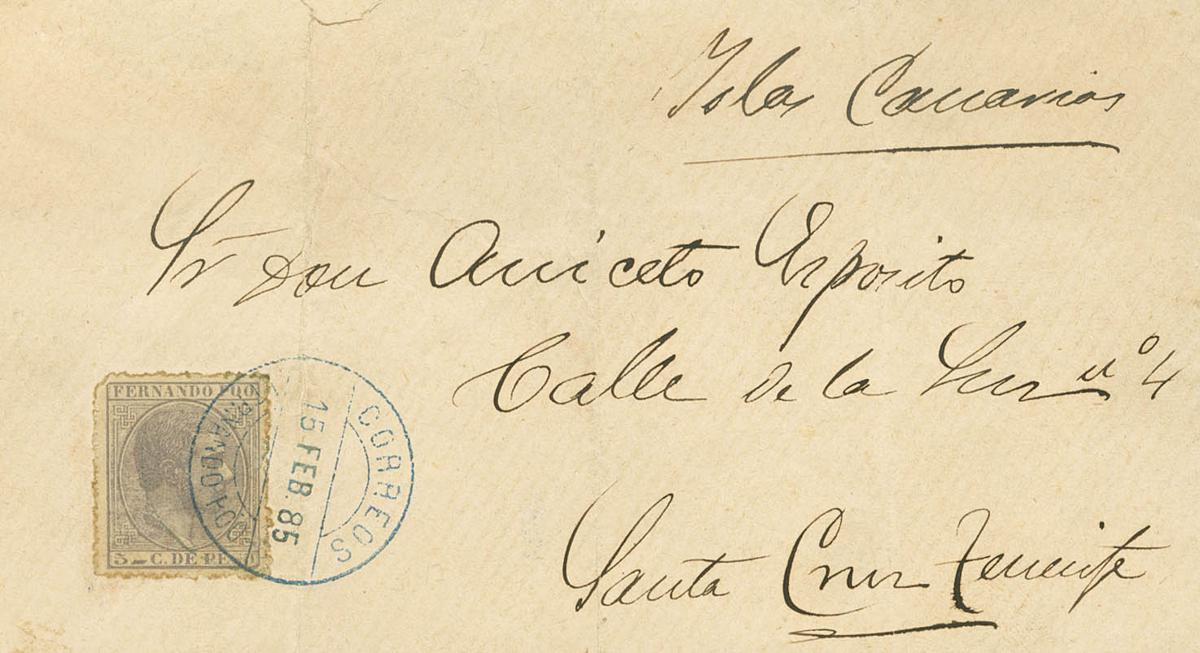 Islas Canarias
Sr Don Aniceto Esposito
Calle de la Luz nº 4
FERNANDO POO
5 C. DE PESO
CORREOS
15 FEB. 85
FERNANDO POO
Santa Cruz Tenerife